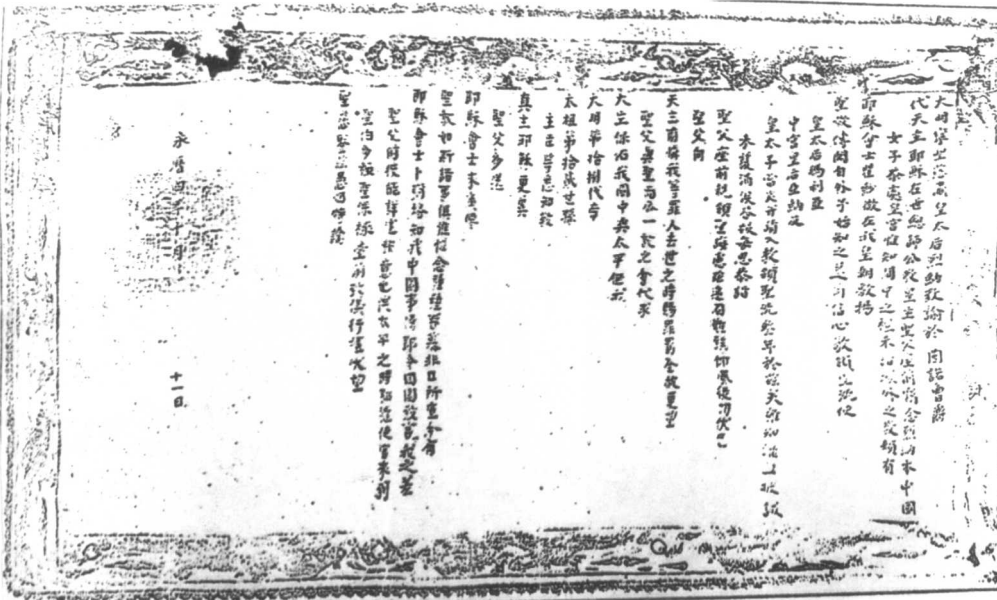 大明寧聖慈肅皇太后烈納致諭於因諾曾爵
代天主耶穌在世總師公教皇主聖父座前竊念烈納本中國
女子忝處皇宮惟知閫中之禮未諳域外之教賴有
耶穌會士瞿紗微在我皇朝敷揚
聖教傳聞自外予始知之遂爾信心敬領聖洗使
皇太后瑪利亞
中宮皇后亞納及
皇太子當定並請入教領聖洗叁年於茲矣雖知瀝血披誠
未獲涓埃答報每思恭詣
聖父座前親領聖誨慮茲遠國難臻仰風徒切伏乞
聖父向
天主前憐我等罪人去世之時賜罪罰全赦更望
聖父與聖而公一教之會代求
天主保佑我國中興太平俾我
大明第拾捌代帝
太祖第拾貳世孫
主臣等悉知敬
真主耶穌更冀
聖父多送
耶穌會士來廣傳
聖教如斯諸事俱維憐念種種眷慕非口所宣今有
耶穌會士卜彌格知我中國事情即令回國致言我之差
聖父前復能詳述鄙意也俟太平之時即遣使官來到
聖伯多祿聖保祿臺前致儀行禮伏望
聖慈鑒茲愚悃特諭
永曆四年十月
十一日